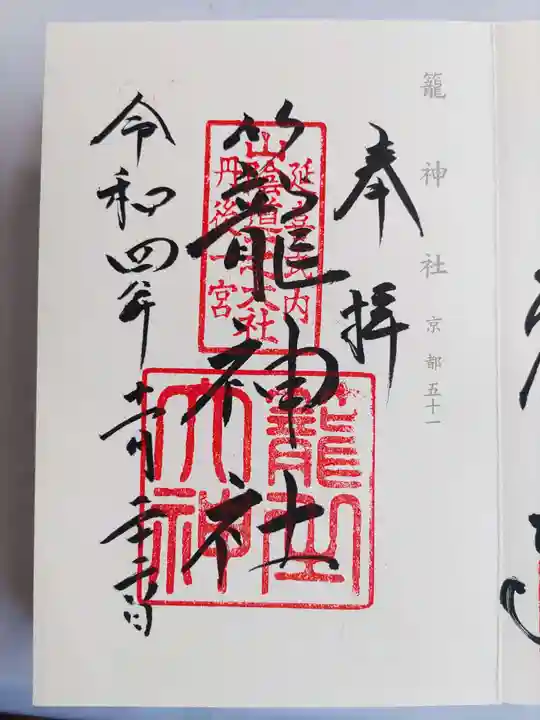 籠神社 京都五十一
奉拝
延喜式内
山陰道一之大社
丹後一宮
籠神社
大神
令和四年